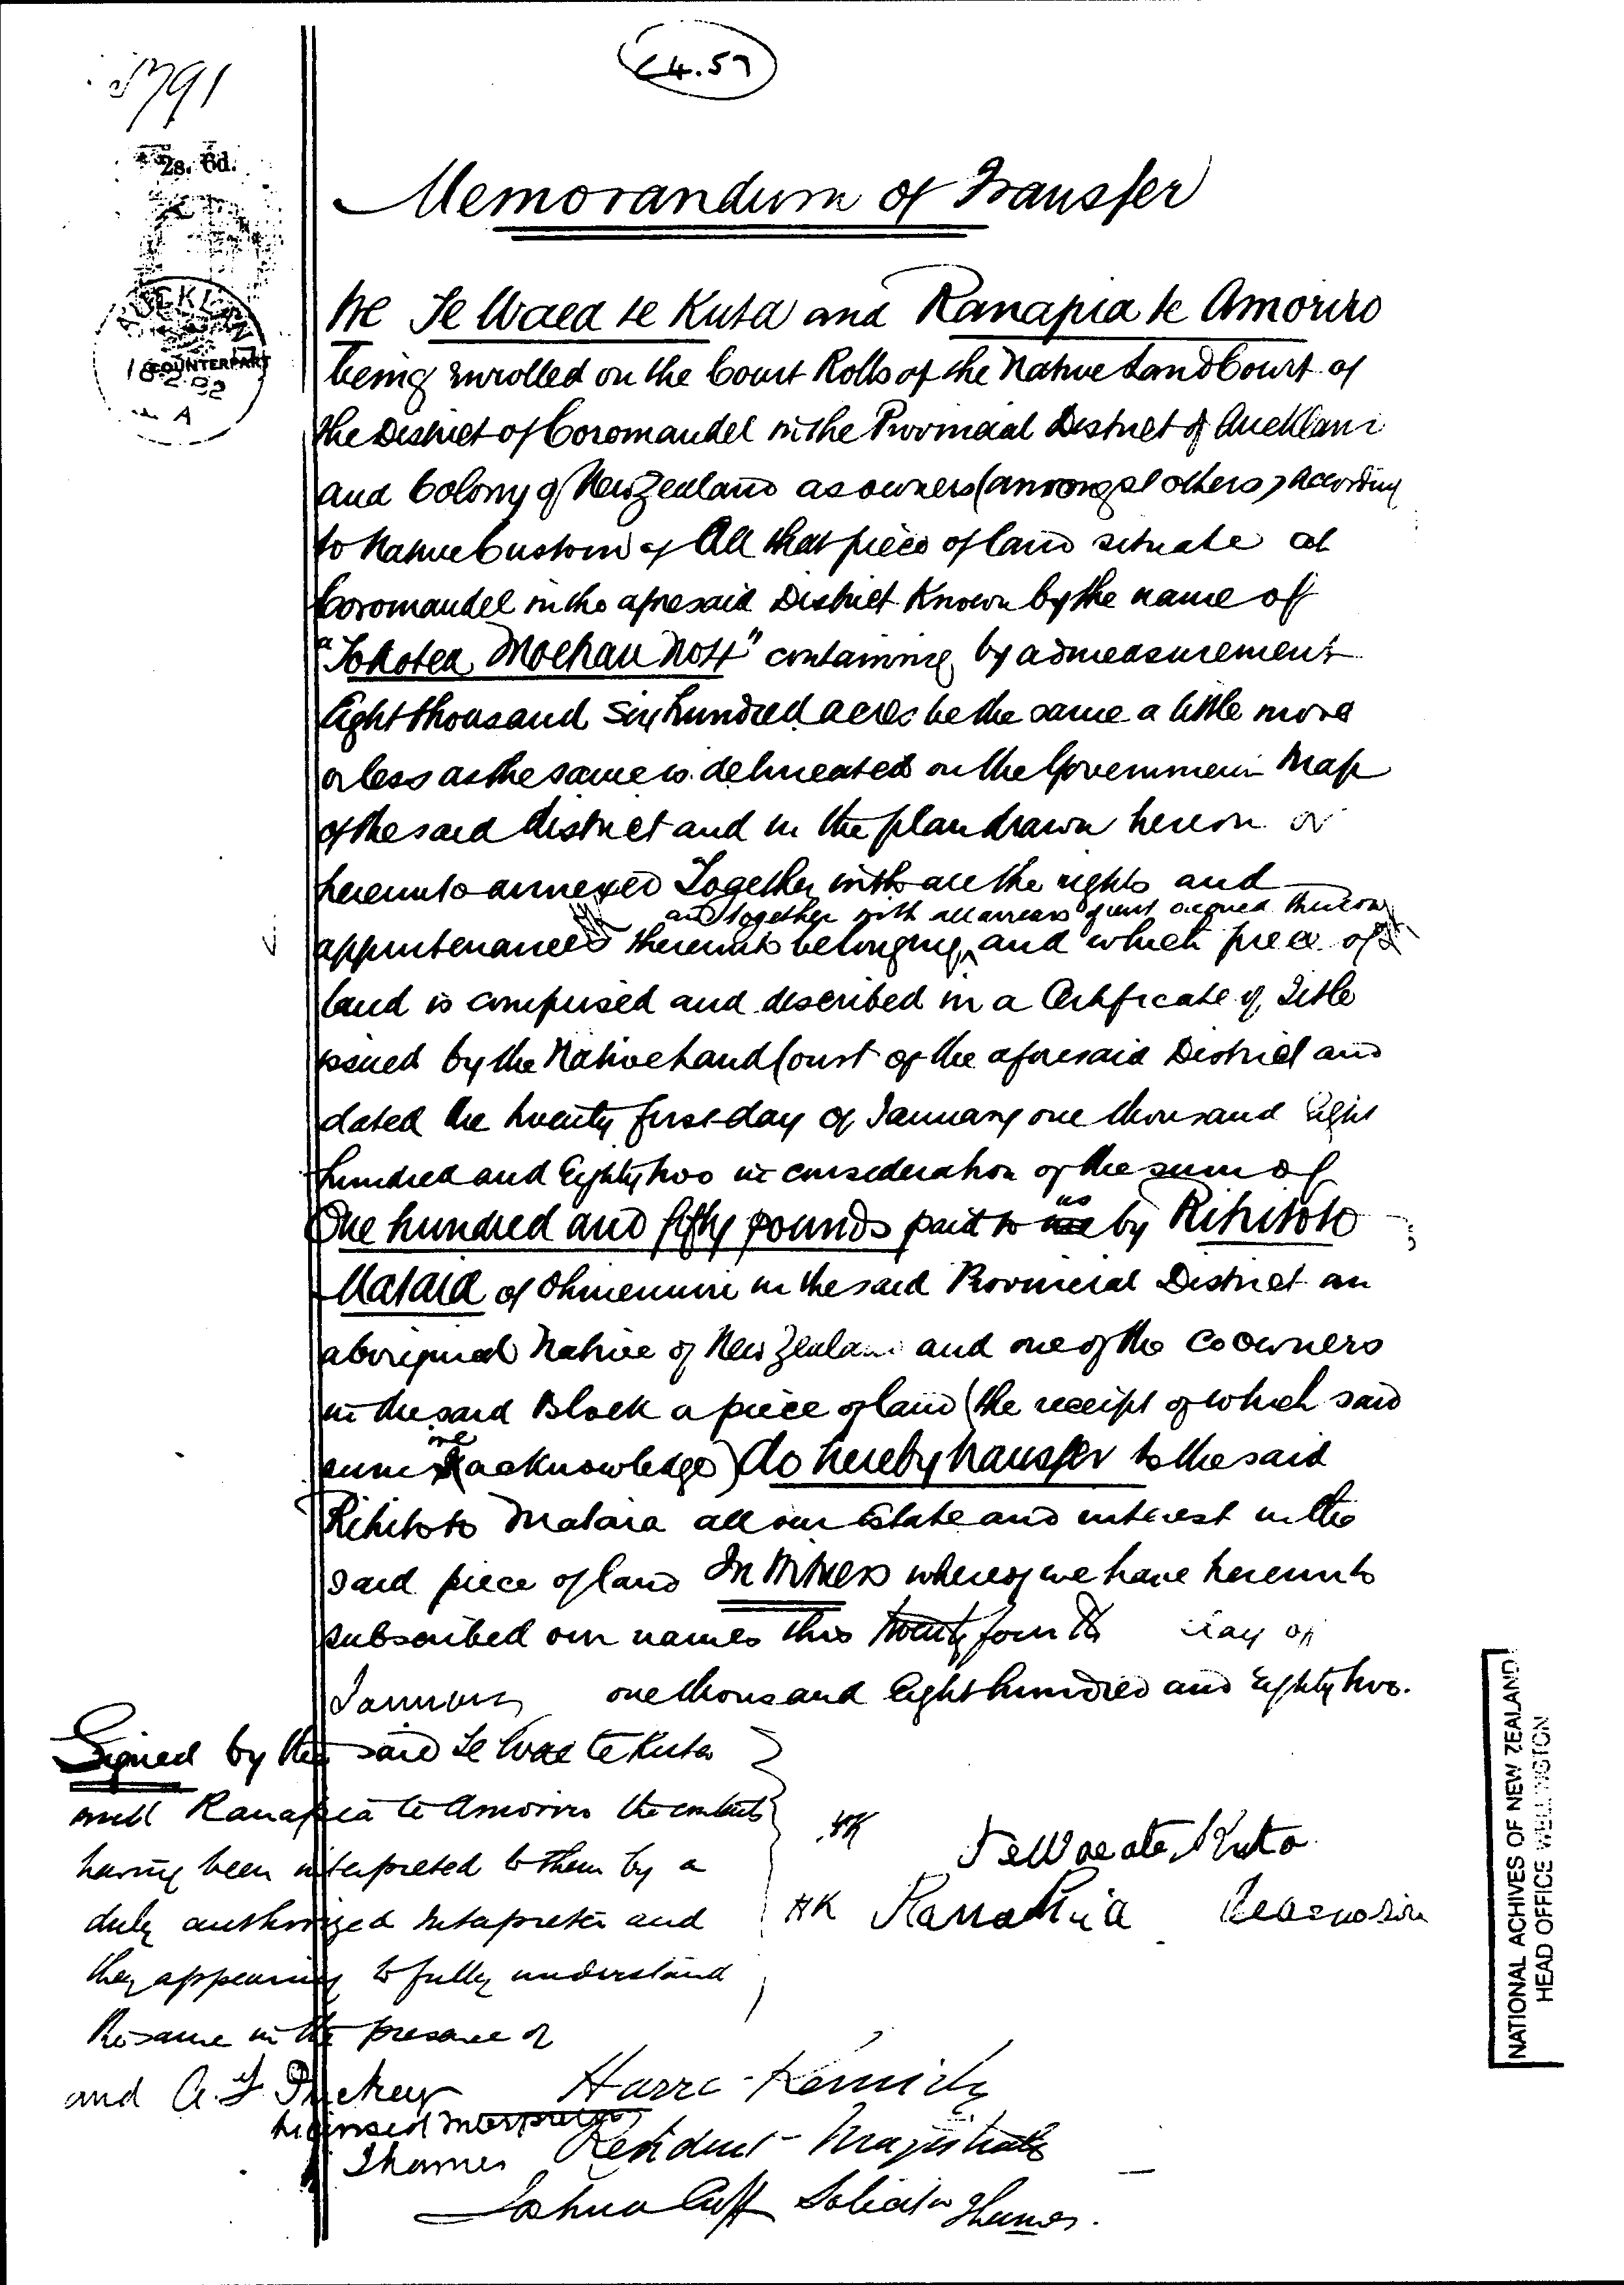 1791
C4.57
2s. 6d.
AUCKLAN
COUNTERPART
A
Memorandum of Transfer
We Te Waea te Kuta and Ranapia te Amoriro
being enrolled on the Court Rolls of the Native Land Court of
the District of Coromandel in the Provincial District of Auckland
and Colony of New Zealand as owners (amongst others) according
to Native Custom of All that piece of land situate at
Coromandel in the aforesaid District Known by the name of
"Tokatea Moehau No 4" containing by admeasurement
Eight thousand six hundred acres be the same a little more
or less as the same is delineated on the Government Map
of the said district and in the plan drawn hereon or
hereunto annexed Together with all the rights and
and together with all arrears of rent accrued thereon
appurtenances thereunto belonging and which piece of
land is comprised and described in a Certificate of Title
issued by the Native Land Court of the aforesaid District and
dated the twenty first day of January one thousand Eight
hundred and Eighty two in consideration of the sum of
us
One hundred and fifty pounds paid to me by Rihitoto
Mataia of Ohinemuri in the said Provincial District an
aboriginal Native of New Zealand and one of the co owners
in the said Block a piece of land (the receipt of which said
we
sum I acknowledge) do hereby transfer to the said
Rihitoto Mataia all our Estate and interest in the
said piece of land In Witness whereof we have hereunto
subscribed our names this twenty fourth day of
January one thousand Eight hundred and Eighty two.
Signed by the said Te Wae te Kuta
and Ranapia te Amoriro the contents
having been interpreted to them by a
duly authorized Interpreter and
they appearing to fully understand
the same in the presence of
HK Te Wae ate Kuta
HK Ranapia
Harry Kenrick
Resident Magistrate
and A. J. Puckey
Licensed Interpreter
Thames
Joshua Cuff Solicitor Thames.
NATIONAL ACHIVES OF NEW ZEALAND
HEAD OFFICE WELLINGTON